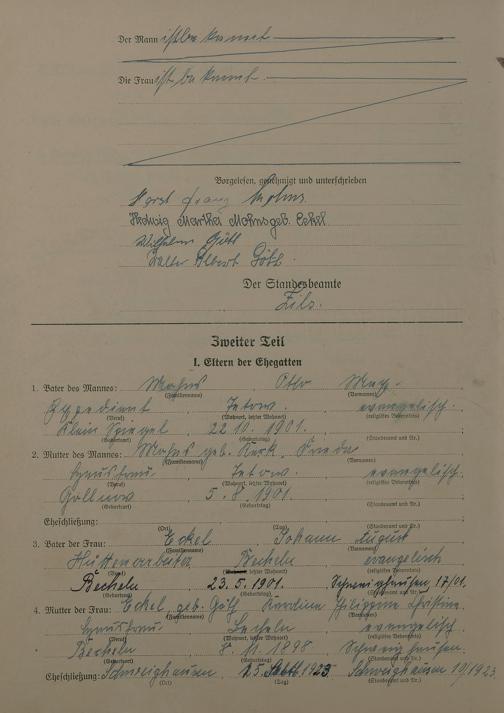 Der Mann ist bekannt
Die Frau ist bekannt
Vorgelesen, genehmigt und unterschrieben
Horst Franz Mohns
Hedwig Martha Mohns geb. Eckel
Wilhelm Göll
Walter Albert Göll
Der Standesbeamte
Zils.
Zweiter Teil
I. Eltern der Ehegatten
1. Vater des Mannes: Mohns Otto Max
(Familienname) (Vornamen)
Tetow evangelisch
(Beruf) (Wohnort, letzter Wohnort) (religiöses Bekenntnis)
Klein Spiegel 22.10.1901.
(Geburtsort) (Geburtstag) (Standesamt und Nr.)
2. Mutter des Mannes: Mohns geb. Kurk Frieda
(Familienname) (Vornamen)
Hausfrau Tetow evangelisch
(Beruf) (Wohnort, letzter Wohnort) (religiöses Bekenntnis)
Gollnow 5.8.1901.
(Geburtsort) (Geburtstag) (Standesamt und Nr.)
Eheschließung:
(Ort) (Tag) (Standesamt und Nr.)
3. Vater der Frau: Eckel Johann August
(Familienname) (Vornamen)
Hüttenarbeiter Becheln evangelisch
(Beruf) (Wohnort, letzter Wohnort) (religiöses Bekenntnis)
Becheln 23.5.1901. Schweighausen, 17/01.
(Geburtsort) (Geburtstag) (Standesamt und Nr.)
4. Mutter der Frau: Eckel geb. Göll Karoline Philippine Christine
(Familienname) (Vornamen)
Hausfrau Becheln evangelisch
(Beruf) (Wohnort, letzter Wohnort) (religiöses Bekenntnis)
Becheln 8.11.1898 Schweighausen
(Geburtsort) (Geburtstag) (Standesamt und Nr.)
Eheschließung: Schweighausen 1923. Schweighausen 10/1923.
(Ort) (Tag) (Standesamt und Nr.)